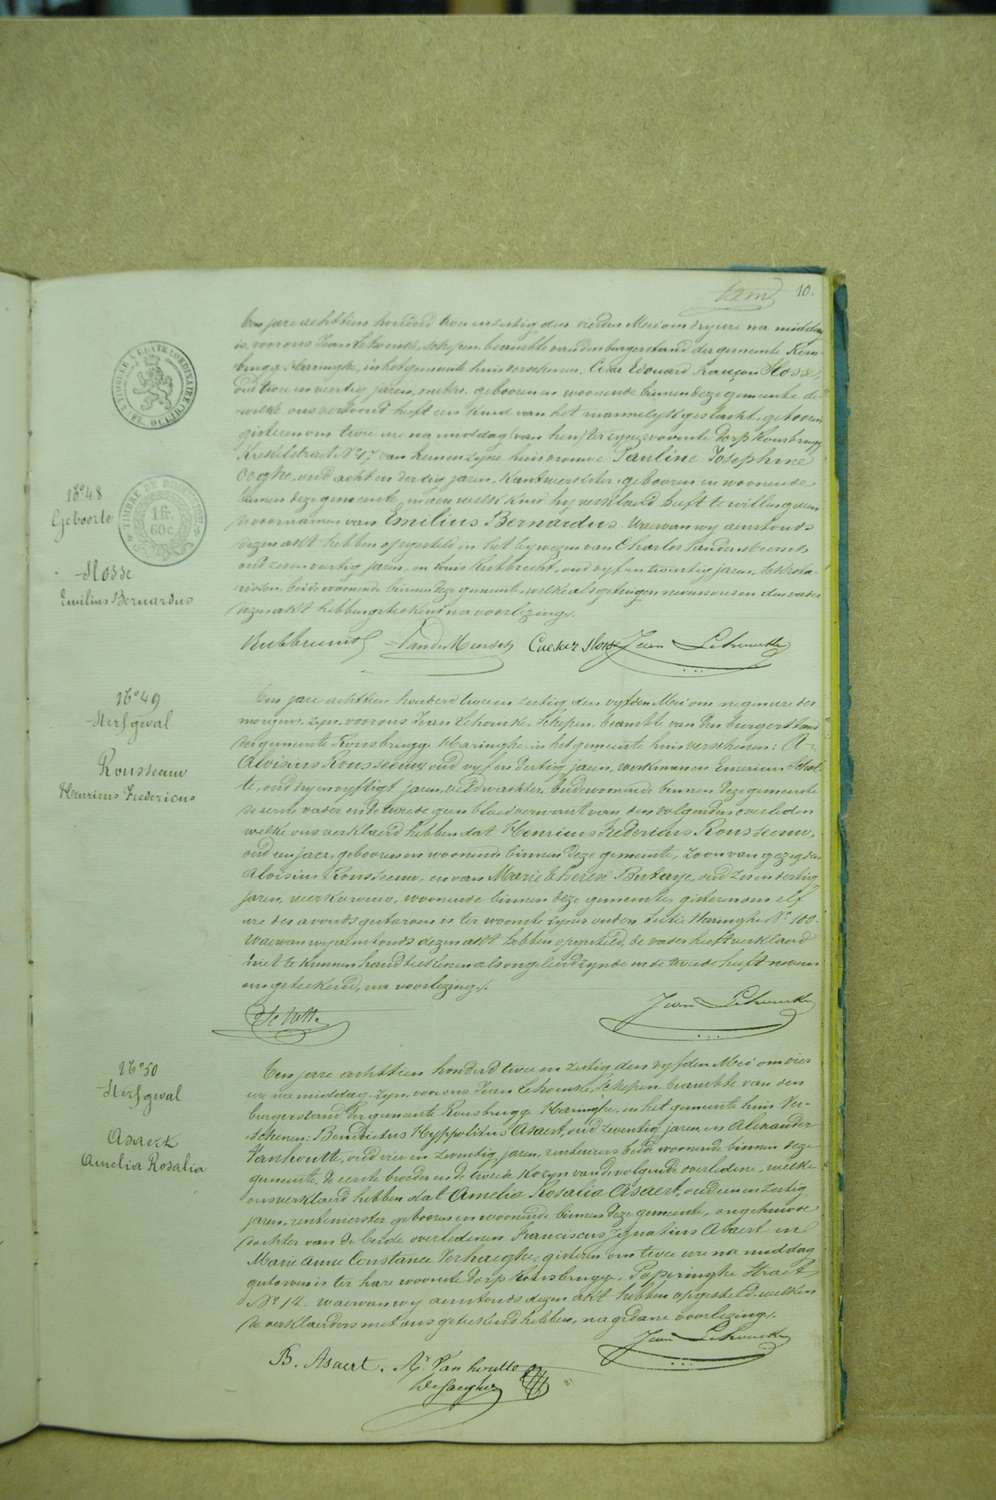 10.
Een jare achttien honderd twee en zestig den vierden Mei om dry ure na middag
is voor ons Jean Lehoucke, schepen beambte van den burgerstand der gemeente Rous-
brugge Haringhe, in het gemeente huis verschenen, Cesar Edouard François Slosse,
oud twee en veertig jaren, geboren en woonende binnen deze gemeente de
welke ons vertoont heeft een kind van het mannelyk geslacht, geboren
gisteren om twee ure na middag van hem ter zyne woonste Dorp Rousbrugge
N° 47 van hem en zyne huisvrouwe Pauline Josephine
Cooghe, oud acht en dertig jaren, Kantwerkster, geboren en woonende
binnen deze gemeente, en aen welk kind hy verklaerd heeft te willen geven
voornamen van Emilius Bernardus. Waervan wy aenstonds
dezen akt hebben opgesteld in het bywezen van Charles Vandermeersch
oud zeven veertig jaren, en Louis Rubbrecht, oud vyf en twintig jaren,
beide woonende binnen deze gemeente, welke als getuigen nevens ons en den vader
dezen akt hebben geteekend na voorlezing.
N° 48
Geboorte
Slosse
Emilius Bernardus
TIMBRE DE
1 fr.
60 c.
Jean Lehoucke
N° 49
Sterfgeval
Rousseeuw
Henricus Fredericus
Een jare achttien honderd twee en zestig, den vyfden Mei om negen ure des
morgens, zyn, voor ons Jean Lehoucke, Schepen, beambte van den burgerstand
der gemeente Rousbrugge Haringhe, in het gemeente huis verschenen: A-
Aloisius Rousseeuw, oud vyf en dertig jaren, werkman en Emerius
oud dry en vyftigt jaren, veldwachter, beide woonende binnen deze gemeente
de eerste vader en de tweede geen bloedverwant van den volgenden overleden
welke ons verklaerd hebben dat Henricus Fredericus Rousseeuw,
oud een jaer, geboren en woonende binnen deze gemeente, zoon van gezegden
Aloisius Rousseeuw, en van Marie Therese oud zes en dertig
jaren, werkvrouw, woonende binnen deze gemeente, gisteren om elf
ure des avonds gestorven is ter woonste zyner ouders sectie Haringhe N° 109.
Waervan wy aenstonds dezen akt hebben opgesteld, de vader heeft verklaerd
niet te kunnen handteekenen als ongeleerd zynde en de tweede heeft nevens
ons geteekend, na voorlezing.
Jean Lehoucke
N° 50
Sterfgeval
Asaert
Amelia Rosalia
Een jare achttien honderd twee en zestig den vyfden Mei om vier
ure na middag, zyn, voor ons Jean Lehoucke, Schepen beambte van den
burgerstand der gemeente Rousbrugge Haringhe, in het gemeente huis ver-
schenen: Benedictus Hyppolitus Asaert, oud zeventig jaren en Alexander
Vanhoutte, oud vier en zeventig jaren, renteniers beide woonende binnen deze
gemeente, de eerste broeder en de tweede kozyn van de volgende overledene, welke
ons verklaerd hebben dat Amelia Rosalia Asaert, oud een en zestig
jaren, rentenierster geboren en woonende binnen deze gemeente, ongehuwde
dochter van de beide overledenen Franciscus Ignatius Asaert en
Marie Anne Constance Verhaeghe, gisteren om twee ure na middag
gestorven is ter hare woonste Dorp Rousbrugge, Poperinghe Straet
N° 12 waervan wy aenstonds dezen akt hebben opgesteld, welken
de verklaerders met ons geteekend hebben, na gedane voorlezing.
Jean Lehoucke
B. Asaert. Ax Vanhoutte